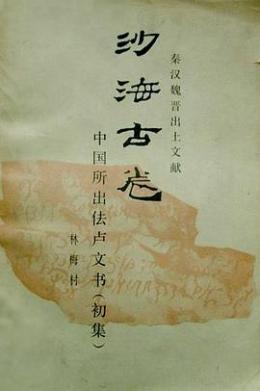 秦汉魏晋出土文献
沙海古卷
中国所出佉卢文书（初集）
林梅村